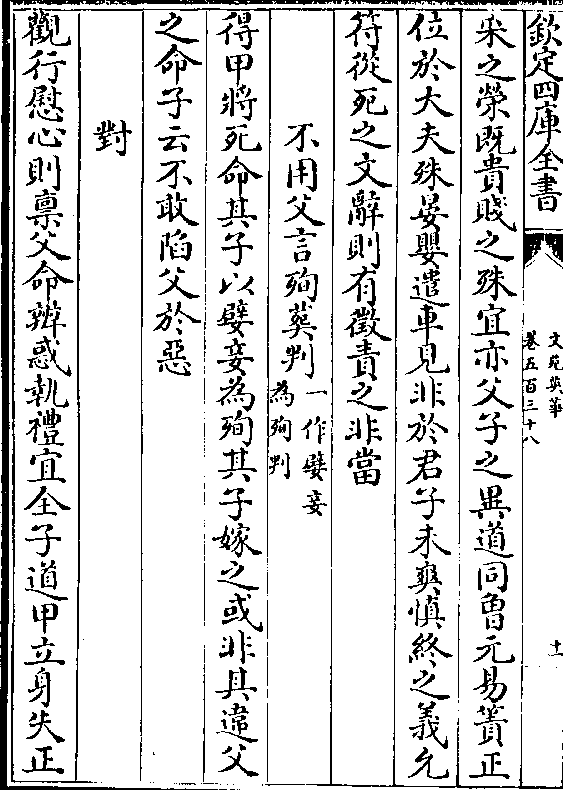 欽定四庫全書
文苑英華
卷五百三十八
十一
采之榮既貴賤之殊宜亦父子之異道同魯元易簀正
位於大夫殊晏嬰遣車見非於君子未爽慎終之義允
符從死之文辭則有徵責之非當
不用父言殉葬判一作嬖妾
為殉判
得甲將死命其子以嬖妾為殉其子嫁之或非其違父
之命子云不敢陷父於惡
對
觀行慰心則稟父命辨惑執禮宜全子道甲立身失正